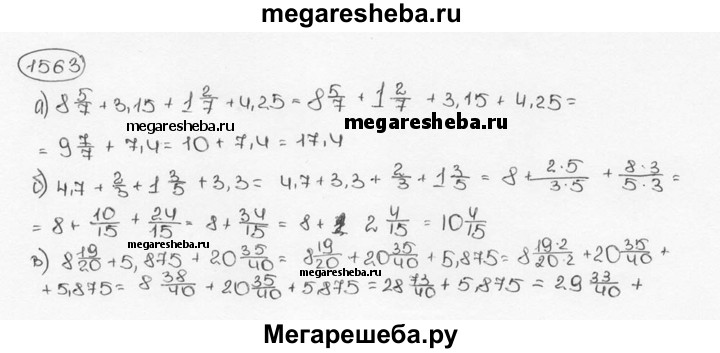 megaresheba.ru
1563
а) 8 5/7 + 3,15 + 1 2/7 + 4,25 = 8 5/7 + 1 2/7 + 3,15 + 4,25 =
megaresheba.ru
megaresheba.ru
= 9 7/7 + 7,4 = 10 + 7,4 = 17,4
б) 4,7 + 2/3 + 1 3/5 + 3,3 = 4,7 + 3,3 + 2/3 + 1 3/5 = 8 + 2·5/3·5 + 8·3/5·3 =
= 8 + 10/15 + 24/15 = 8 + 34/15 = 8 + 2 4/15 = 10 4/15
megaresheba.ru
в) 8 19/20 + 5,875 + 20 35/40 = 8 19/20 + 20 35/40 + 5,875 = 8 19·2/20·2 + 20 35/40 +
megaresheba.ru
+ 5,875 = 8 38/40 + 20 35/40 + 5,875 = 28 73/40 + 5,875 = 29 33/40 +
Мегарешеба.ру